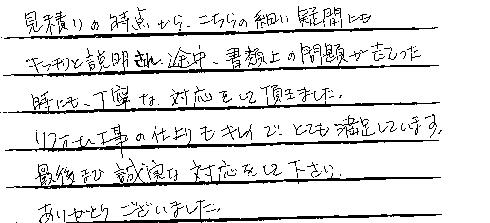 見積りの時点から、こちらの細い疑問にも
キッチリと説明され、途中、書類上の問題が起こった
時にも、丁寧な対応をして頂きました。
リフォーム工事の仕上りもキレイで、とても満足しています。
最後まで誠実な対応をして下さり、
ありがとうございました。